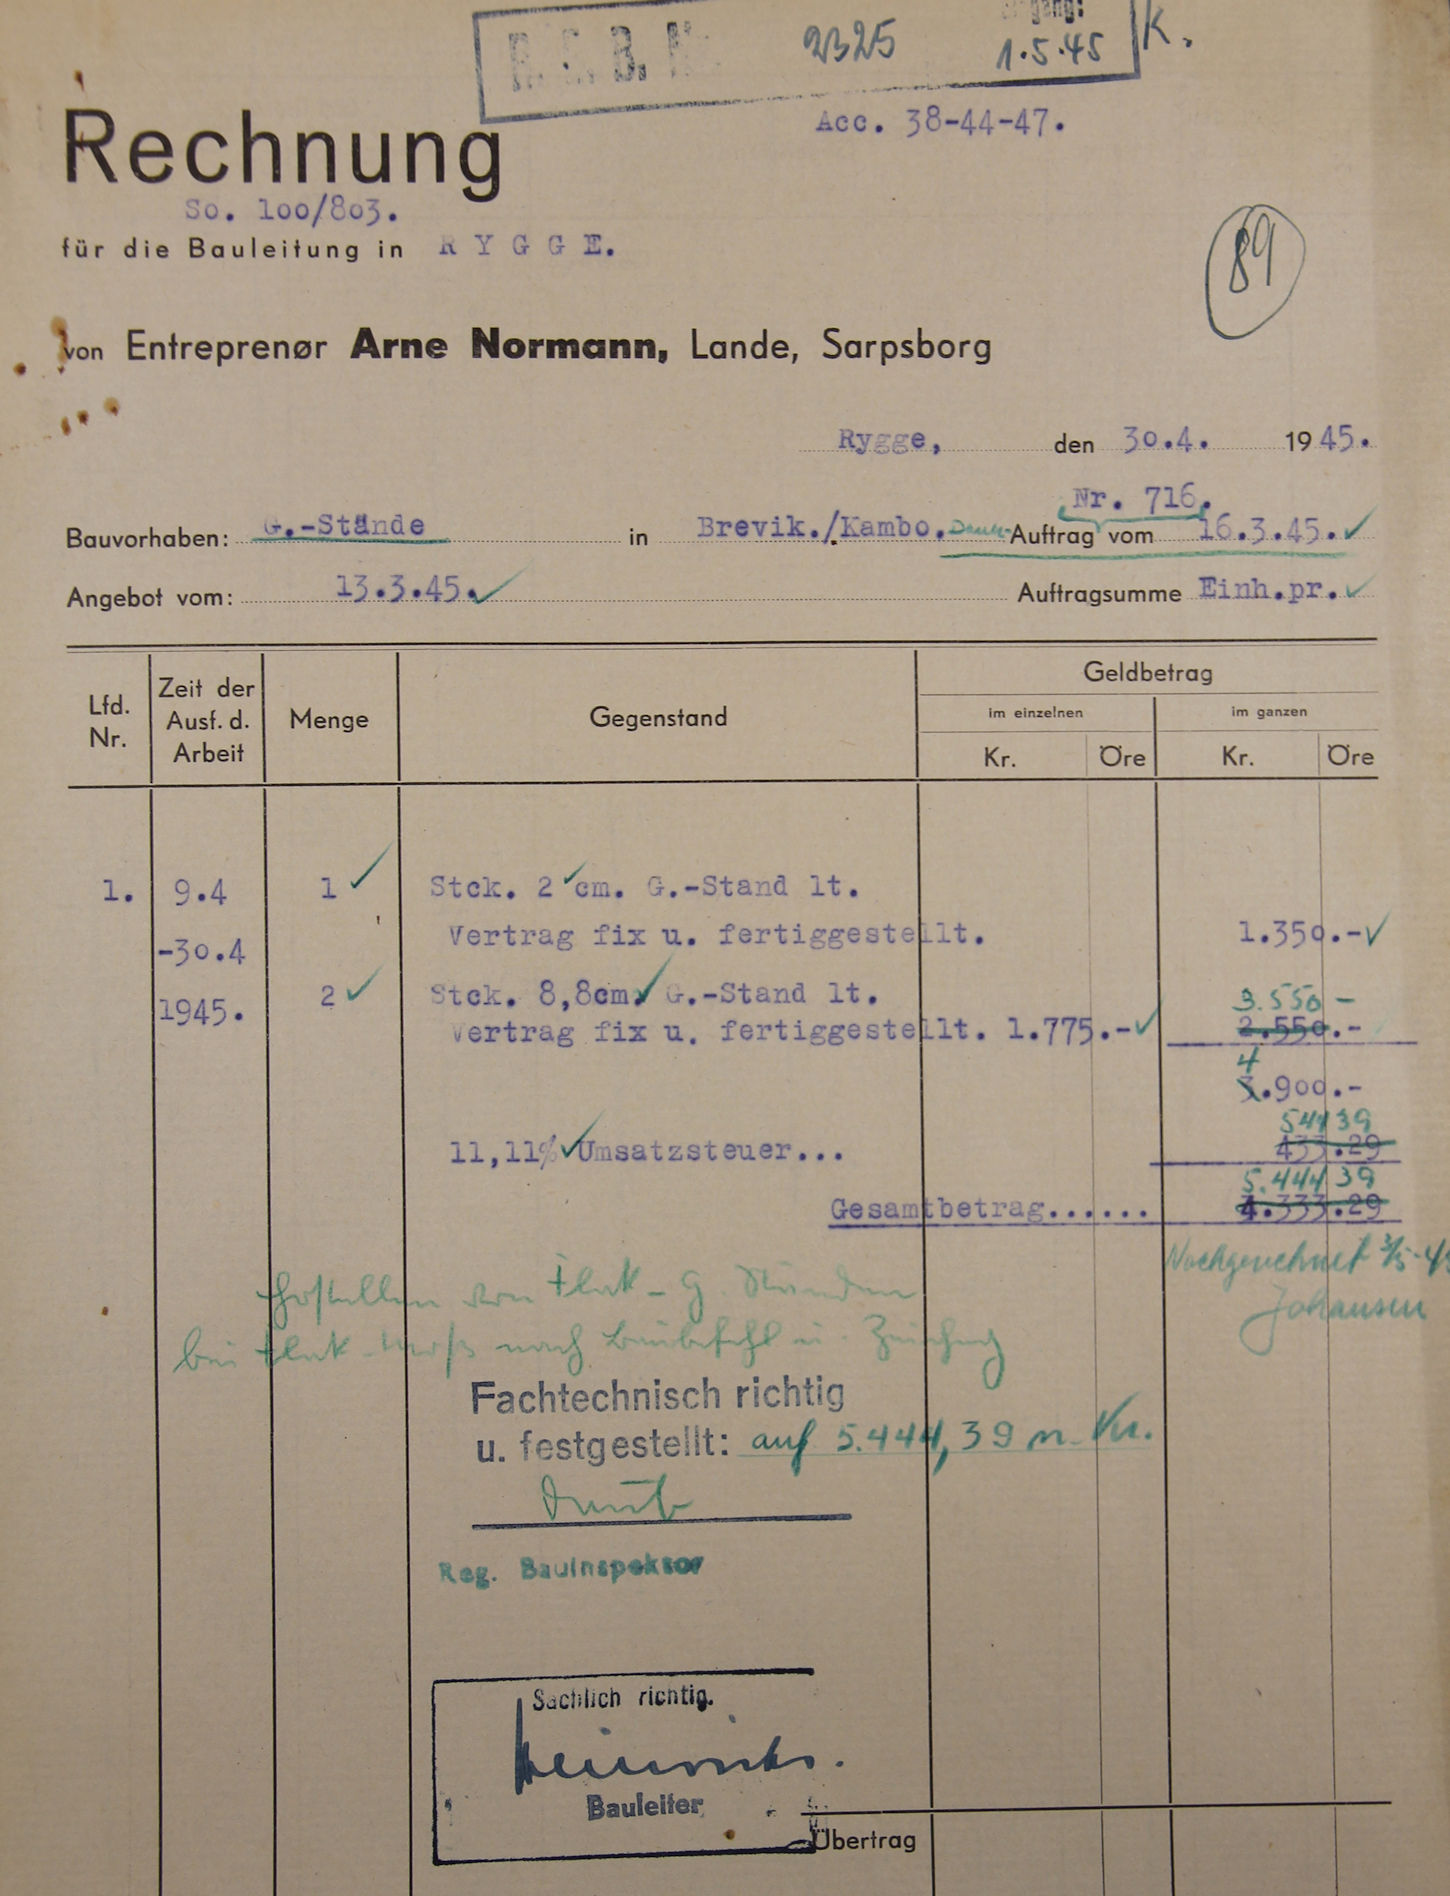 2325 1.5.45 K.
Acc. 38-44-47.
Rechnung
So. 100/803.
für die Bauleitung in RYGGE.
89
von Entreprenør Arne Normann, Lande, Sarpsborg
Rygge, den 30.4. 1945.
Nr. 716.
Bauvorhaben: G.-Stände in Brevik./Kambo. Auftrag vom 16.3.45. ✓
Angebot vom: 13.3.45. ✓ Auftragsumme Einh.pr. ✓
Geldbetrag
Lfd. Nr. Zeit der Ausf. d. Arbeit Menge Gegenstand im einzelnen im ganzen
Kr. Öre Kr. Öre
1. 9.4 1 ✓ Stck. 2 ✓ cm. G.-Stand lt.
-30.4 Vertrag fix u. fertiggestellt. 1.350.- ✓
1945. 2 ✓ Stck. 8,8cm. ✓ G.-Stand lt. 3.550 -
Vertrag fix u. fertiggestellt. 1.775.- ✓ 2.550.-
4
3.900.-
544 39
11,11% ✓ Umsatzsteuer... 433.29
5.444 39
Gesamtbetrag...... 4.333.29
Nachgerechnet 3/5-45
Johansen
Herstellen von Flak-G. Ständen
bei Flak-Moss nach Baubefehl u.
Fachtechnisch richtig
u. festgestellt: auf 5.444,39 n. Kr.
Reg. Bauinspektor
Sachlich richtig.
Bauleiter
Übertrag